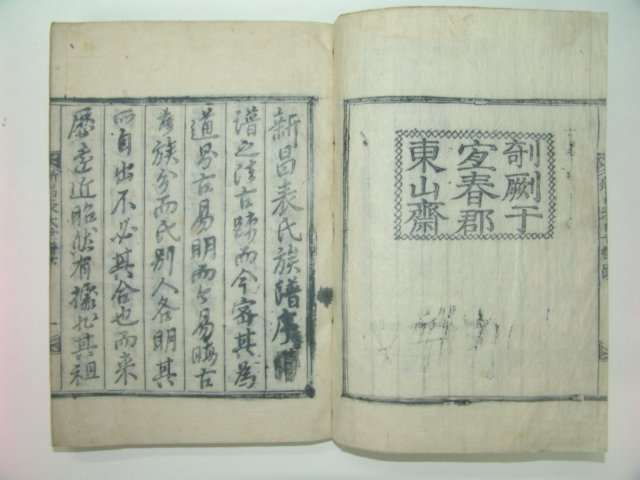 剞劂于
宜春郡
東山齋
新昌表氏族譜序
譜之法古踈而今密其為
道易古易明而今易晦古
者族分而氏別人各明其
所自出不必其合也而來
歷遠近昭然有據於其祖